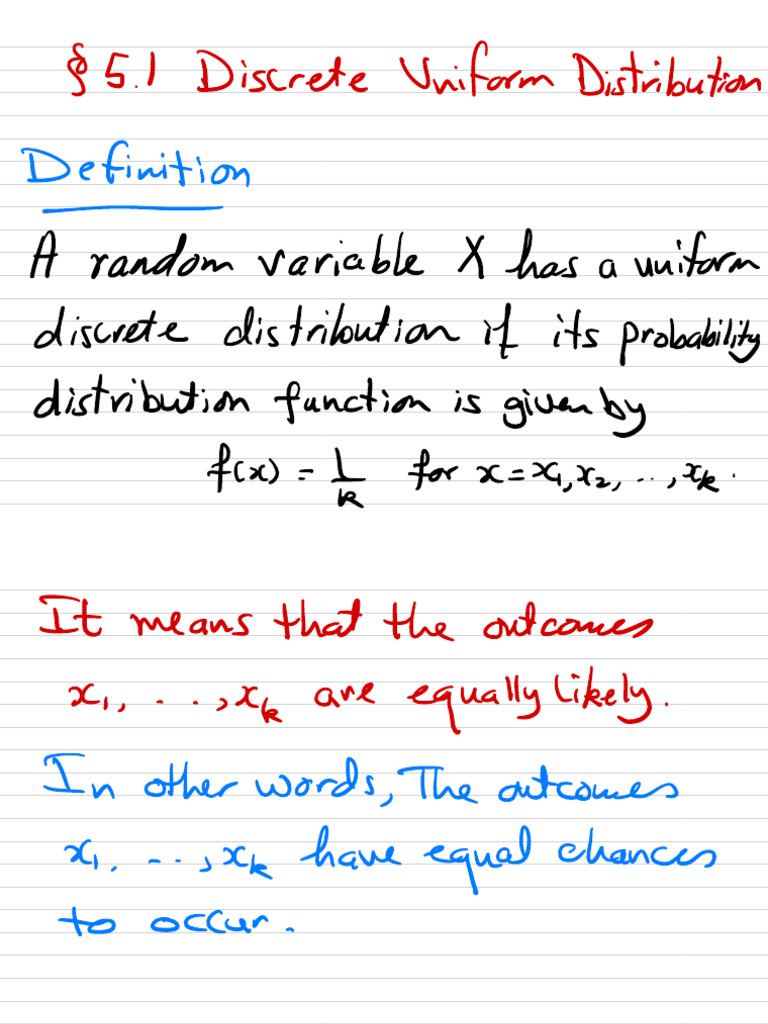 § 5.1 Discrete Uniform Distribution
Definition
A random variable X has a uniform
discrete distribution if its probability
distribution function is given by
f(x) = 1/k for x = x₁, x₂, ..., xₖ.
It means that the outcomes
x₁, ..., xₖ are equally likely.
In other words, The outcomes
x₁, ..., xₖ have equal chances
to occur.